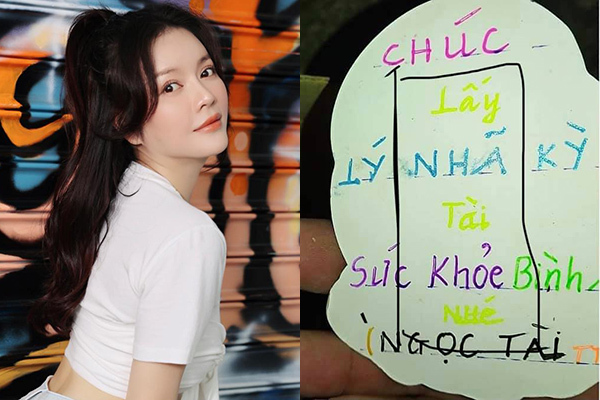 CHÚC
Lấy
LÝ NHÃ KỲ
Tài
Sức Khỏe Bình
Nhé
(NGỌC TÀI TT